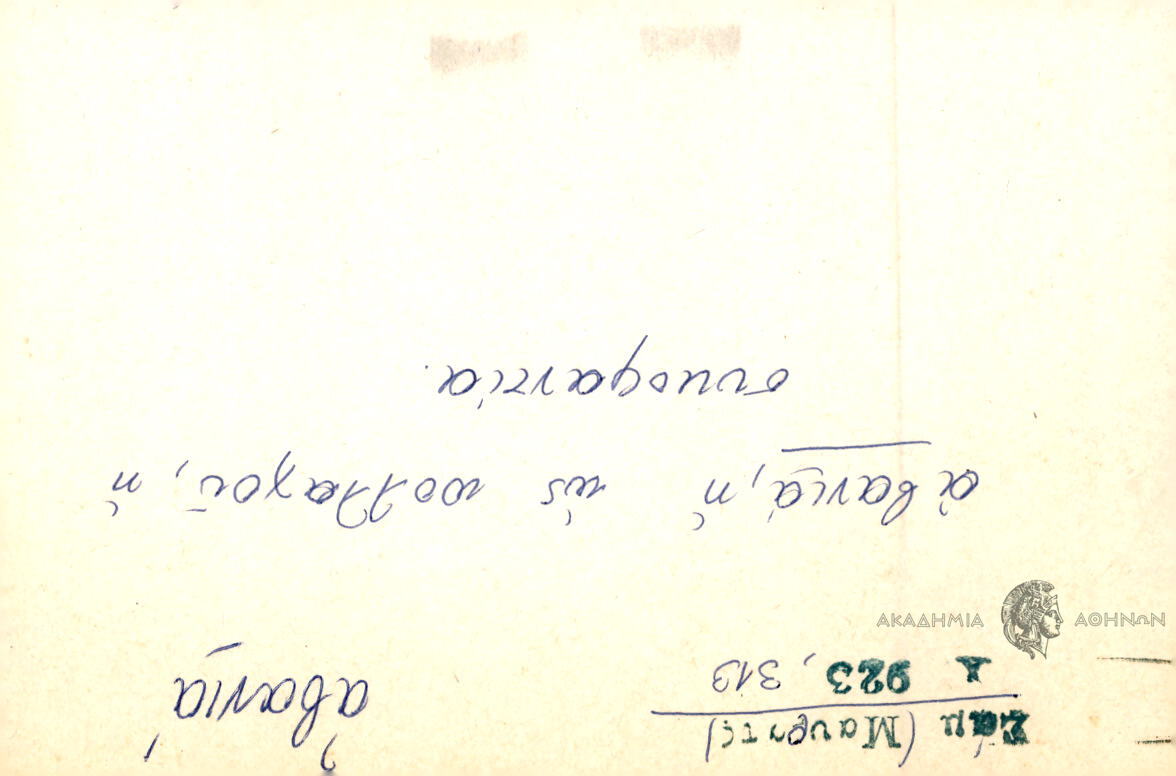 ἀβανιά
Σάμ (Μαυρατζ)
Λ 923, 313
ἀβανιά, ἡ ὡς πολλαχοῦ, ἡ
συκοφαντία.
ΑΚΑΔΗΜΙΑ ΑΘΗΝΩΝ